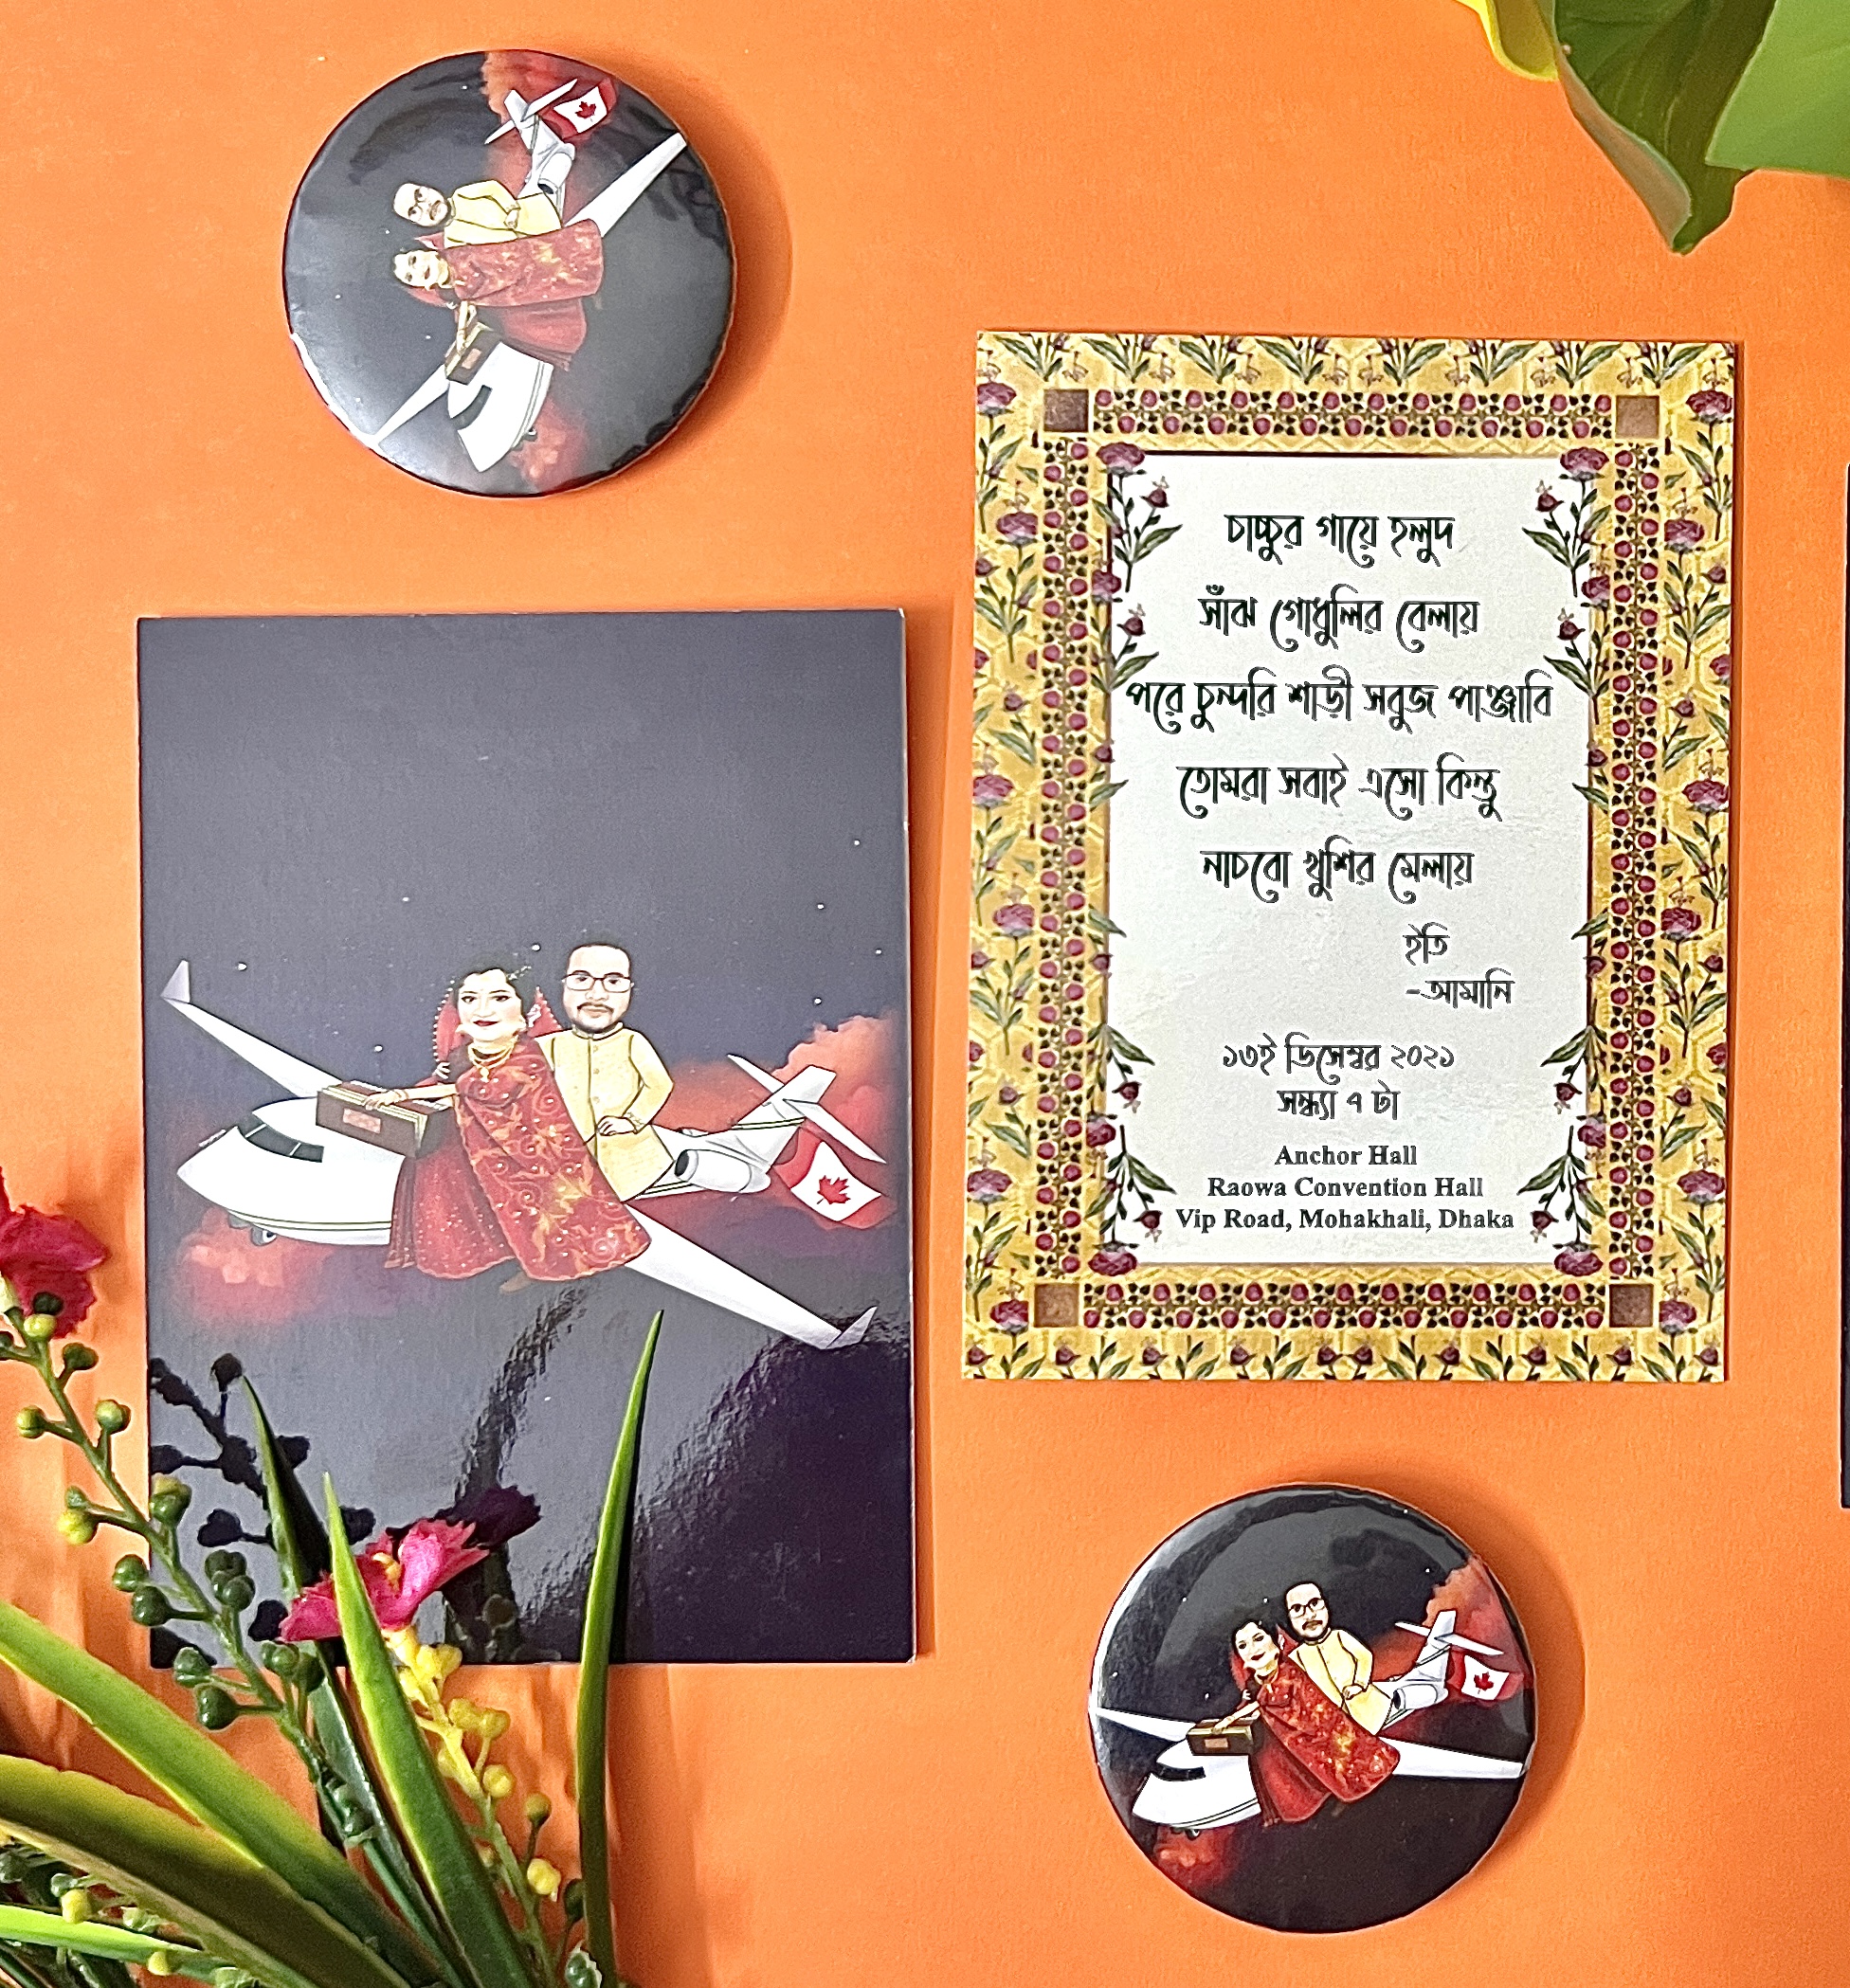 চাচ্চুর গায়ে হলুদ
সাঁঝ গোধুলির বেলায়
পরে চুন্দরি শাড়ী সবুজ পাঞ্জাবি
তোমরা সবাই এসো কিন্তু
নাচবো খুশির মেলায়
ইতি
-আমানি
১৩ই ডিসেম্বর ২০২১
সন্ধ্যা ৭ টা
Anchor Hall
Raowa Convention Hall
Vip Road, Mohakhali, Dhaka